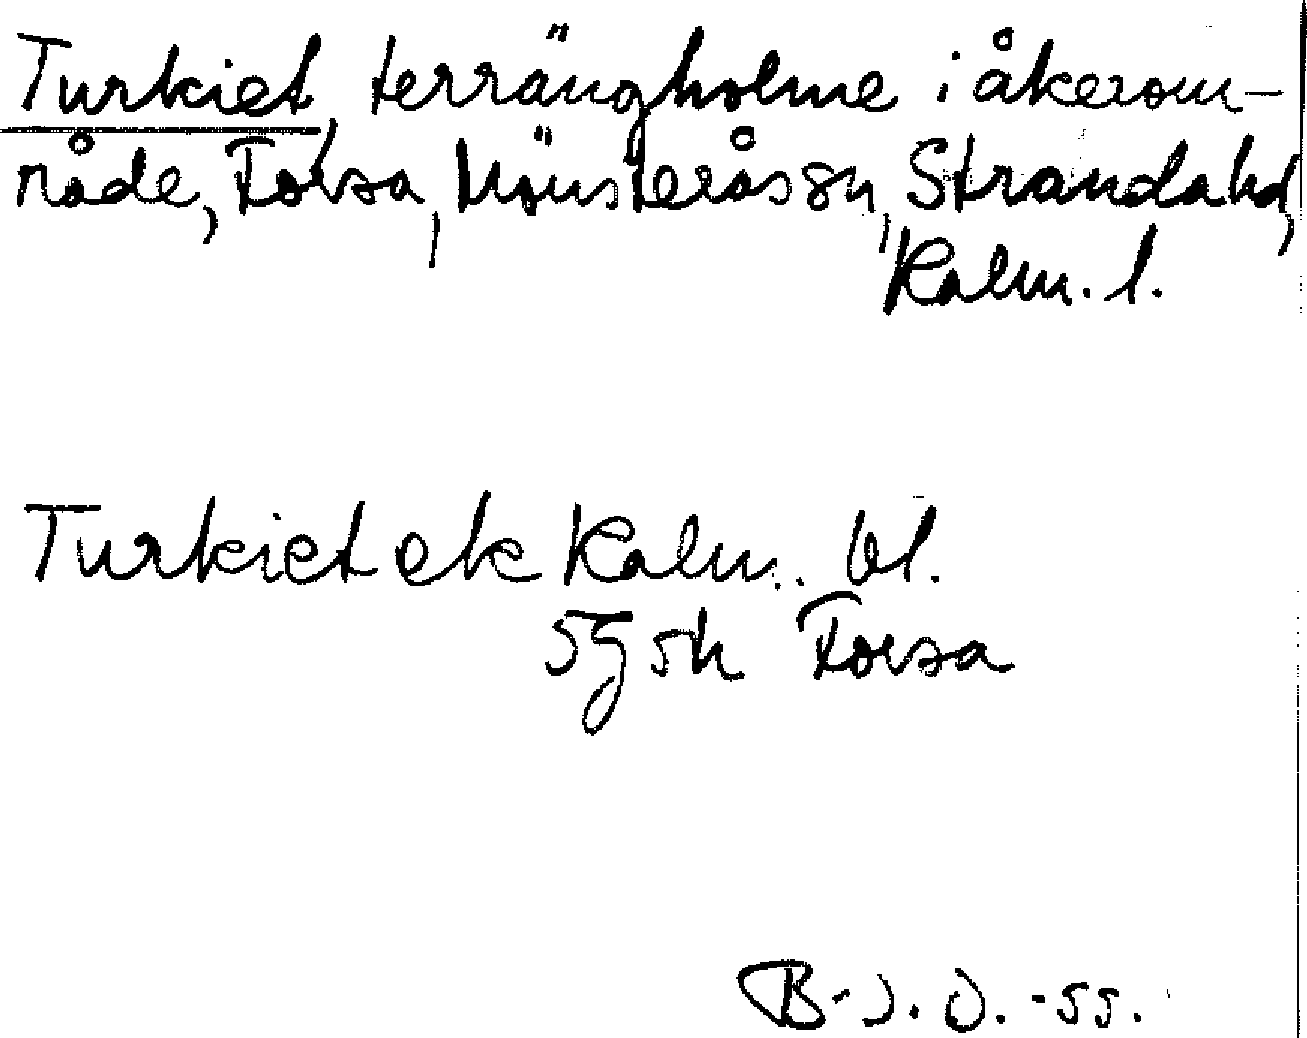 Turkiet, terrängholme i åkerom-
råde, Forsa, Mönsterås sn, Stranda hd,
Kalm. l.
Turkiet ek Kalm. bl.
5g 5h Forsa
B-J. O. -55.